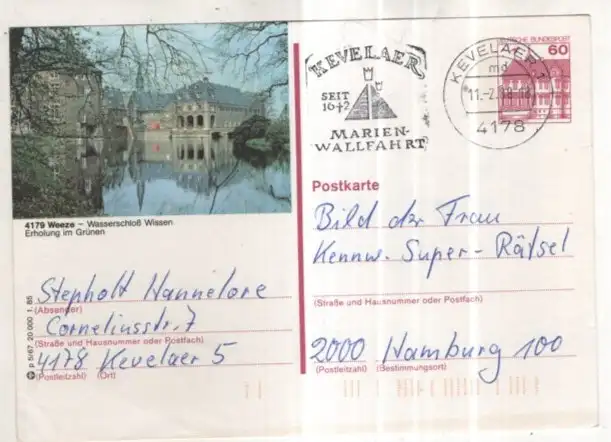 KEVELAER
SEIT
1642
MARIEN-
WALLFAHRT
KEVELAER
md
4178
DEUTSCHE BUNDESPOST
60
4179 Weeze – Wasserschloß Wissen
Erholung im Grünen
Stepholt Hannelore
(Absender)
Corneliusstr. 7
(Straße und Hausnummer oder Postfach)
4178 Kevelaer 5
(Postleitzahl) (Ort)
p 5/67 20 000 1. 85
Postkarte
Bild der Frau
Kennw. Super-Rätsel
(Straße und Hausnummer oder Postfach)
2000 Hamburg 100
(Postleitzahl) (Bestimmungsort)